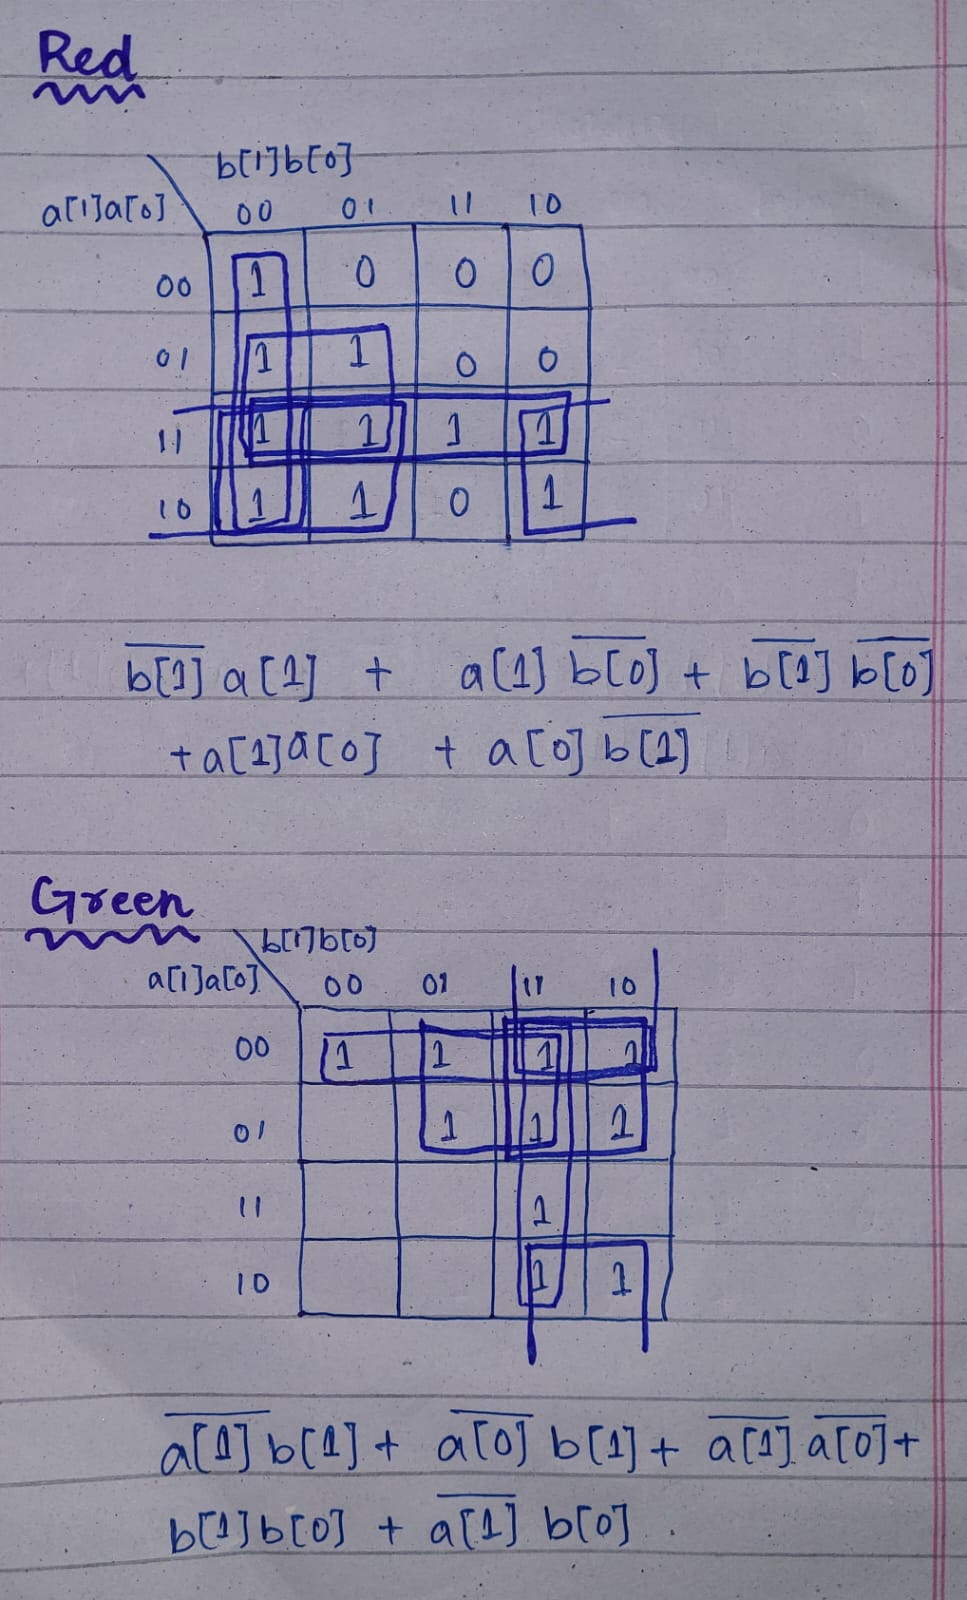 Red
b[1]b[0]
a[1]a[0] 00 01 11 10
00 1 0 0 0
01 1 1 0 0
11 1 1 1 1
10 1 1 0 1
b̅[̅1̅]̅ a[1] + a[1] b̅[̅0̅]̅ + b̅[̅1̅]̅ b̅[̅0̅]̅
+ a[1]a[0] + a[0] b̅[̅1̅]̅
Green
b[1]b[0]
a[1]a[0] 00 01 11 10
00 1 1 1 1
01 1 1 1
11 1
10 1 1
a̅[̅1̅]̅ b[1] + a̅[̅0̅]̅ b[1] + a̅[̅1̅]̅. a̅[̅0̅]̅ +
b[1]b[0] + a̅[̅1̅]̅ b[0].